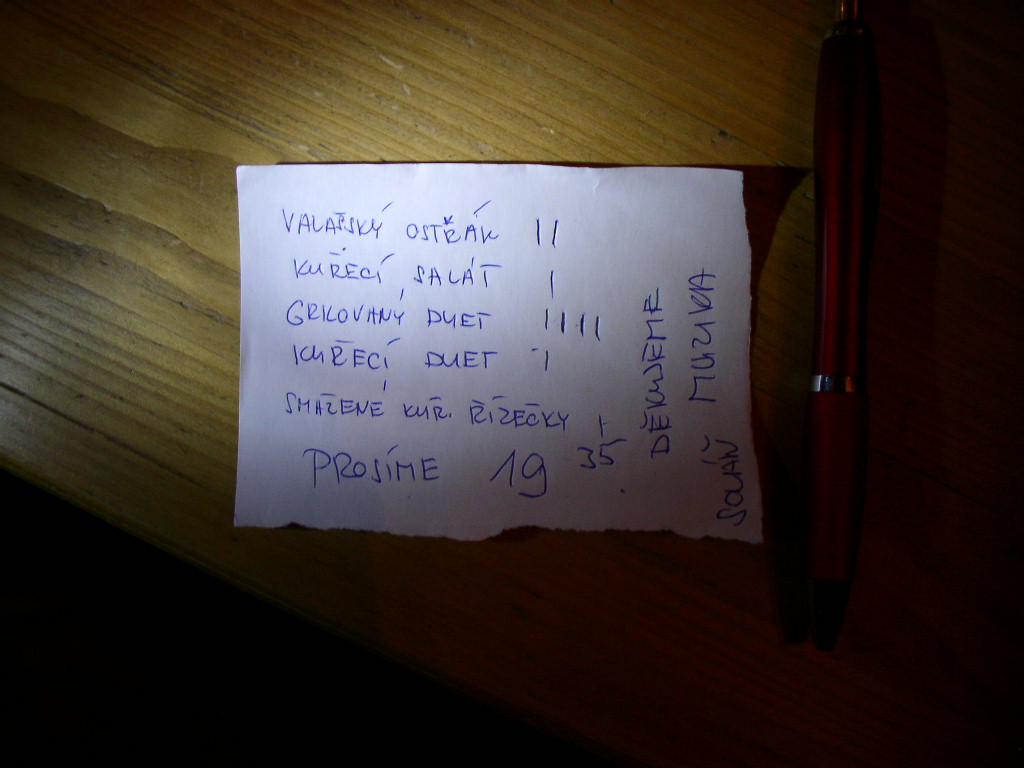 VALAŠSKÝ OSTŘÁK II
KUŘECÍ SALÁT I
GRILOVANÝ DUET IIII
KUŘECÍ DUET I
SMAŽENÉ KUŘ. ŘÍZEČKY I
PROSÍME 19 35
DĚKUJEME
SOLÁŇ MUZIKA